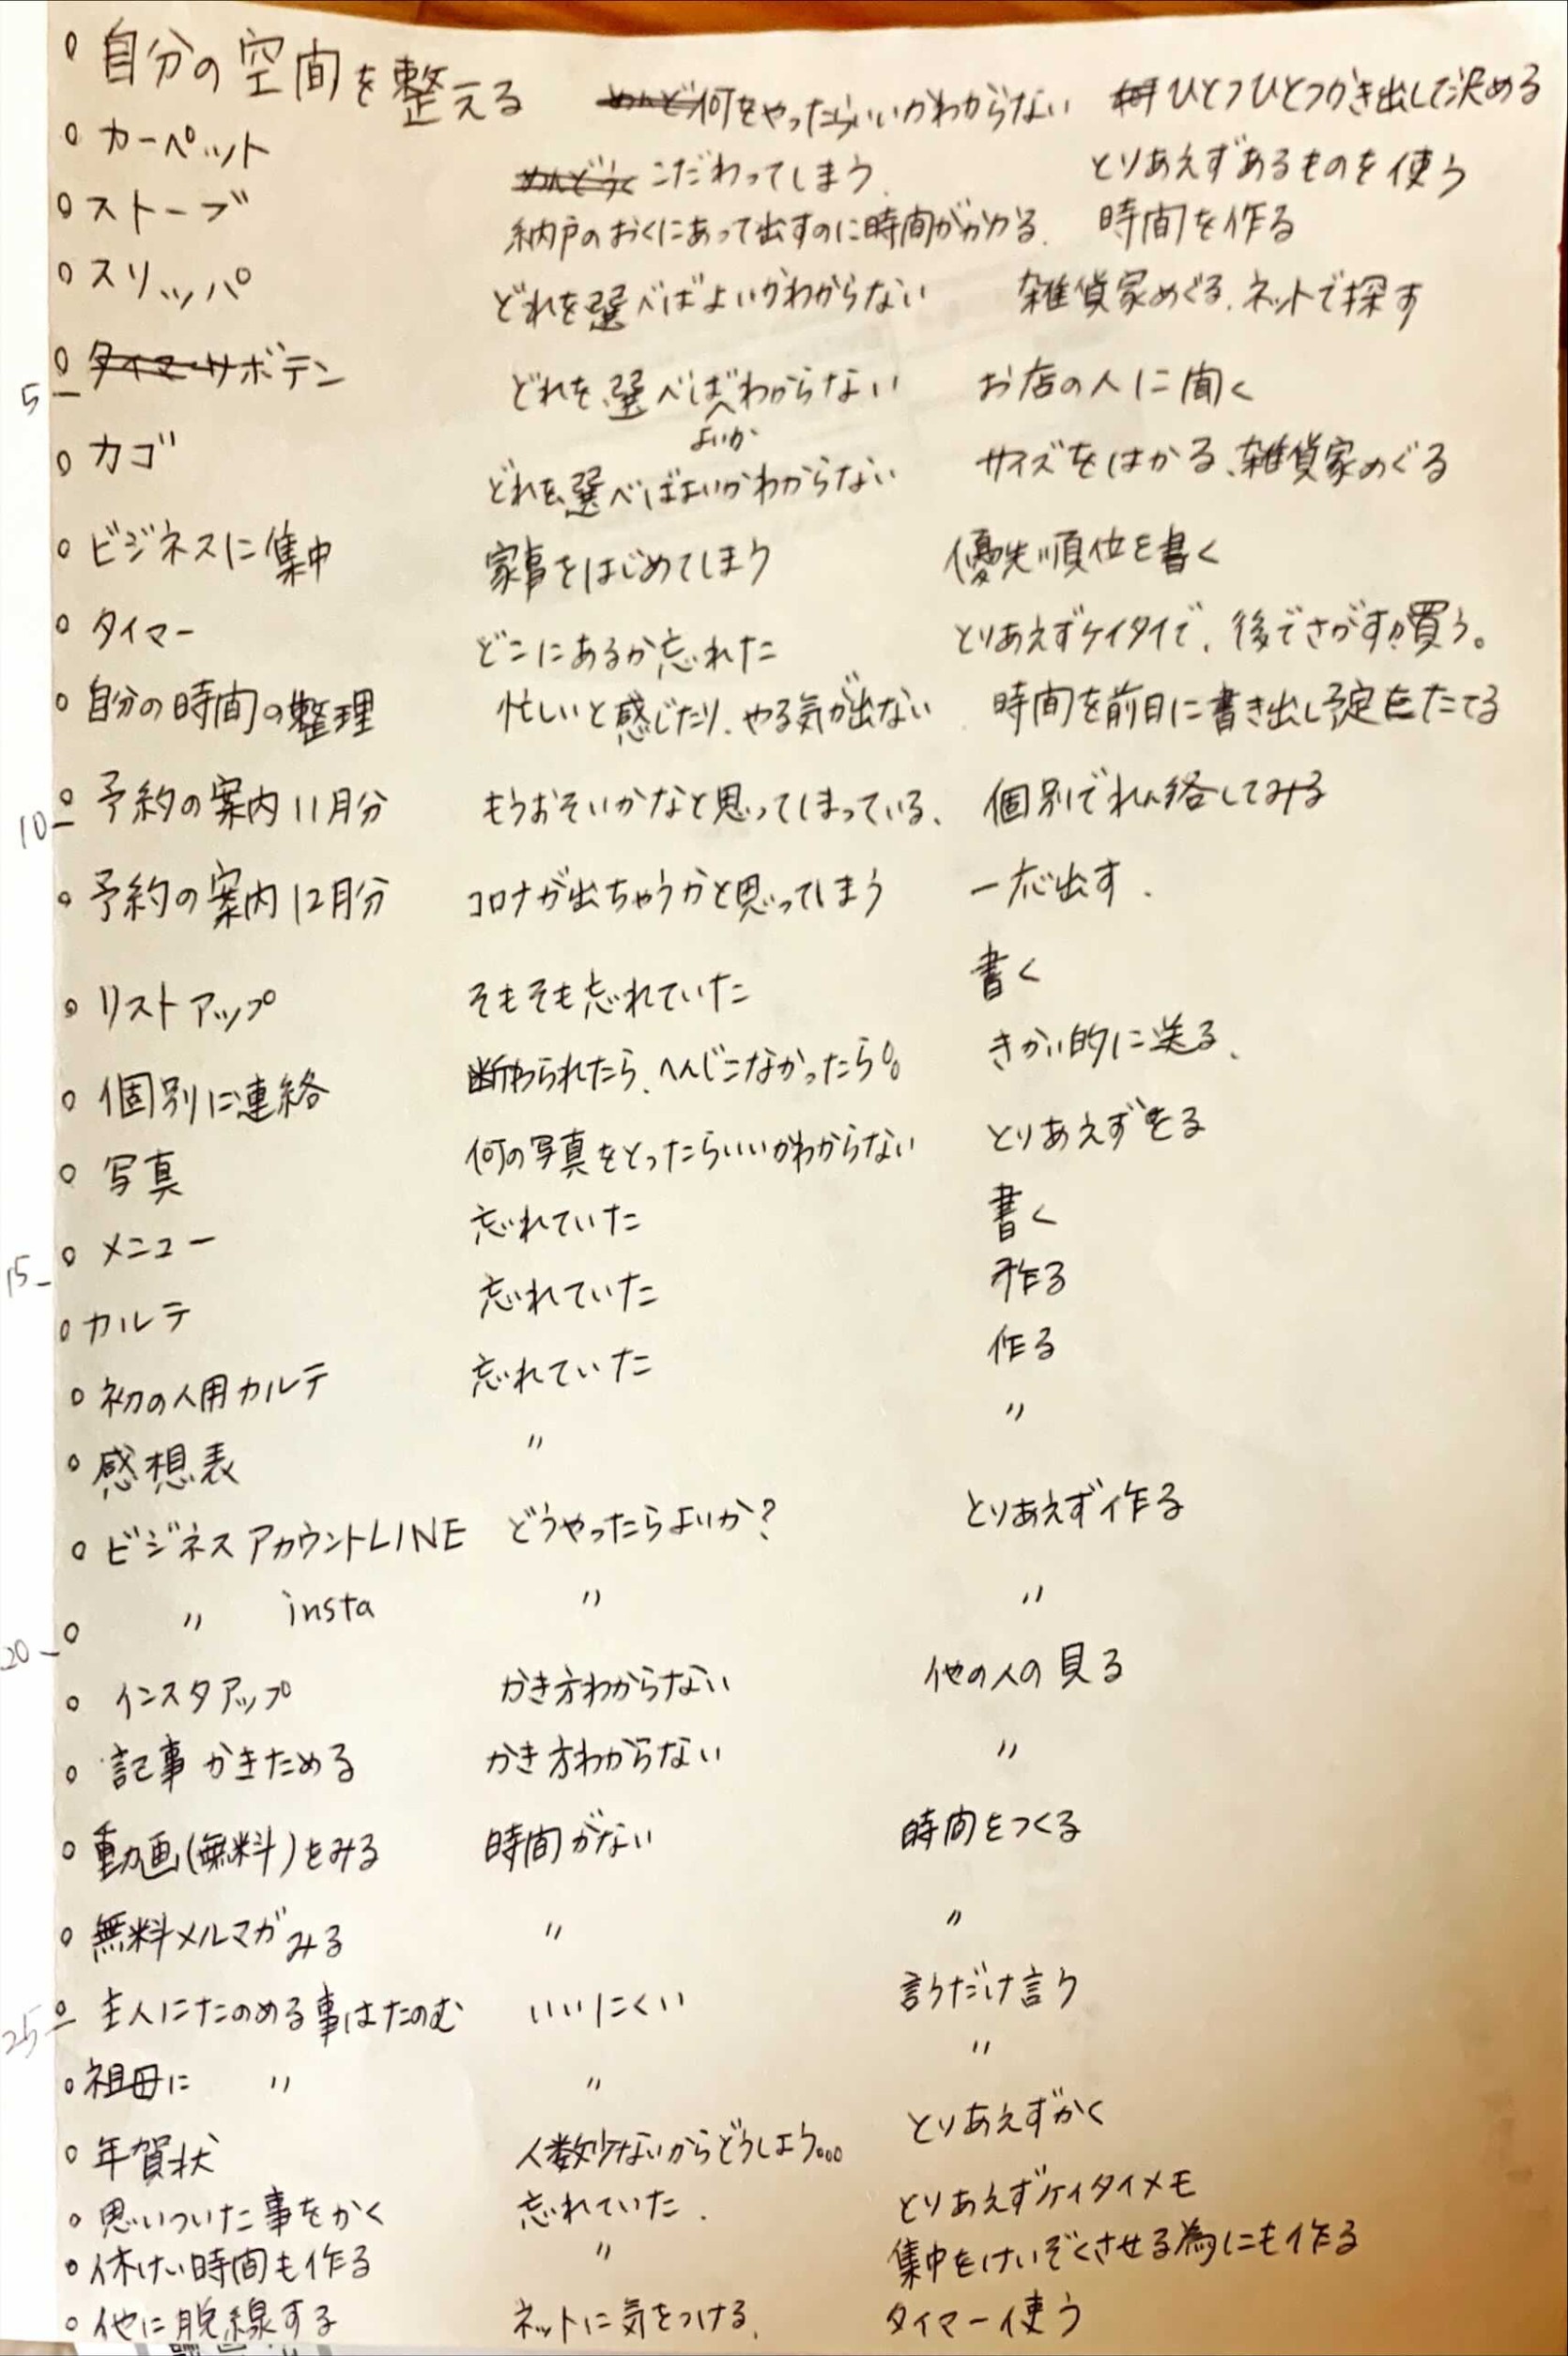 ○ 自分の空間を整える 何をやったらいいかわからない ひとつひとつかき出して決める
○ カーペット こだわってしまう. とりあえずあるものを使う
○ ストーブ 納戸のおくにあって出すのに時間がかかる. 時間を作る
○ スリッパ どれを選べばよいかわからない 雑貨家めぐる、ネットで探す
5 ○ タイマー サボテン どれを選べばよいかわからない お店の人に聞く
○ カゴ どれを選べばよいかわからない サイズをはかる、雑貨家めぐる
○ ビジネスに集中 家事をはじめてしまう 優先順位を書く
○ タイマー どこにあるか忘れた とりあえずケイタイで、後でさがすか買う。
○ 自分の時間の整理 忙しいと感じたり、やる気が出ない 時間を前日に書き出し予定をたてる
10 ○ 予約の案内11月分 もうおそいかなと思ってしまっている、 個別でれん絡してみる
○ 予約の案内12月分 コロナが出ちゃうかと思ってしまう 一応出す.
○ リストアップ そもそも忘れていた 書く
○ 個別に連絡 断わられたら、へんじこなかったら。 きかい的に送る、
○ 写真 何の写真をとったらいいかわからない とりあえずとる
15 ○ メニュー 忘れていた 書く
○ カルテ 忘れていた 作る
○ 初の人用カルテ 忘れていた 作る
○ 感想表 〃 〃
○ ビジネスアカウントLINE どうやったらよいか? とりあえず作る
20 ○ 〃 insta 〃 〃
○ インスタアップ かき方わからない 他の人の見る
○ 記事かきためる かき方わからない 〃
○ 動画(無料)をみる 時間がない 時間をつくる
○ 無料メルマガみる 〃 〃
25 ○ 主人にたのめる事はたのむ いいにくい 言うだけ言う
○ 祖母に 〃 〃 〃
○ 年賀状 人数少ないからどうしよう... とりあえずかく
○ 思いついた事をかく 忘れていた. とりあえずケイタイメモ
○ 休けい時間も作る 〃 集中をけいぞくさせる為にも作る
○ 他に脱線する ネットに気をつける. タイマー使う